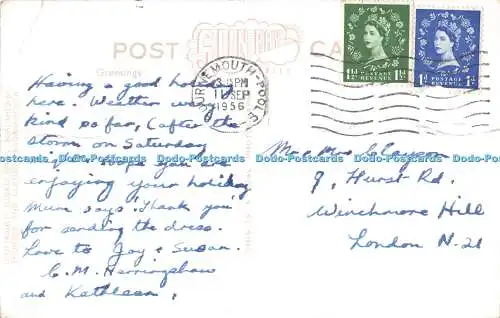 POST CARD
GUNN
Greetings
1½d POSTAGE REVENUE 1½d
1d POSTAGE REVENUE 1d
BOURNEMOUTH - POOLE
PM
SEP
1956
Having a good holiday
here. Weather very
kind so far, (after the
storm on Saturday
hope you are
enjoying your holiday
Mum says 'Thank you'
for sending the dress.
Love to Joy & Susan.
C. M. Herringshaw
and Kathleen,
Mr & Mrs Clayson
9, Hurst Rd.
Winchmore Hill
London N. 21
Postcards DataPostcards DataPostcards DataPostcards DataPostcards